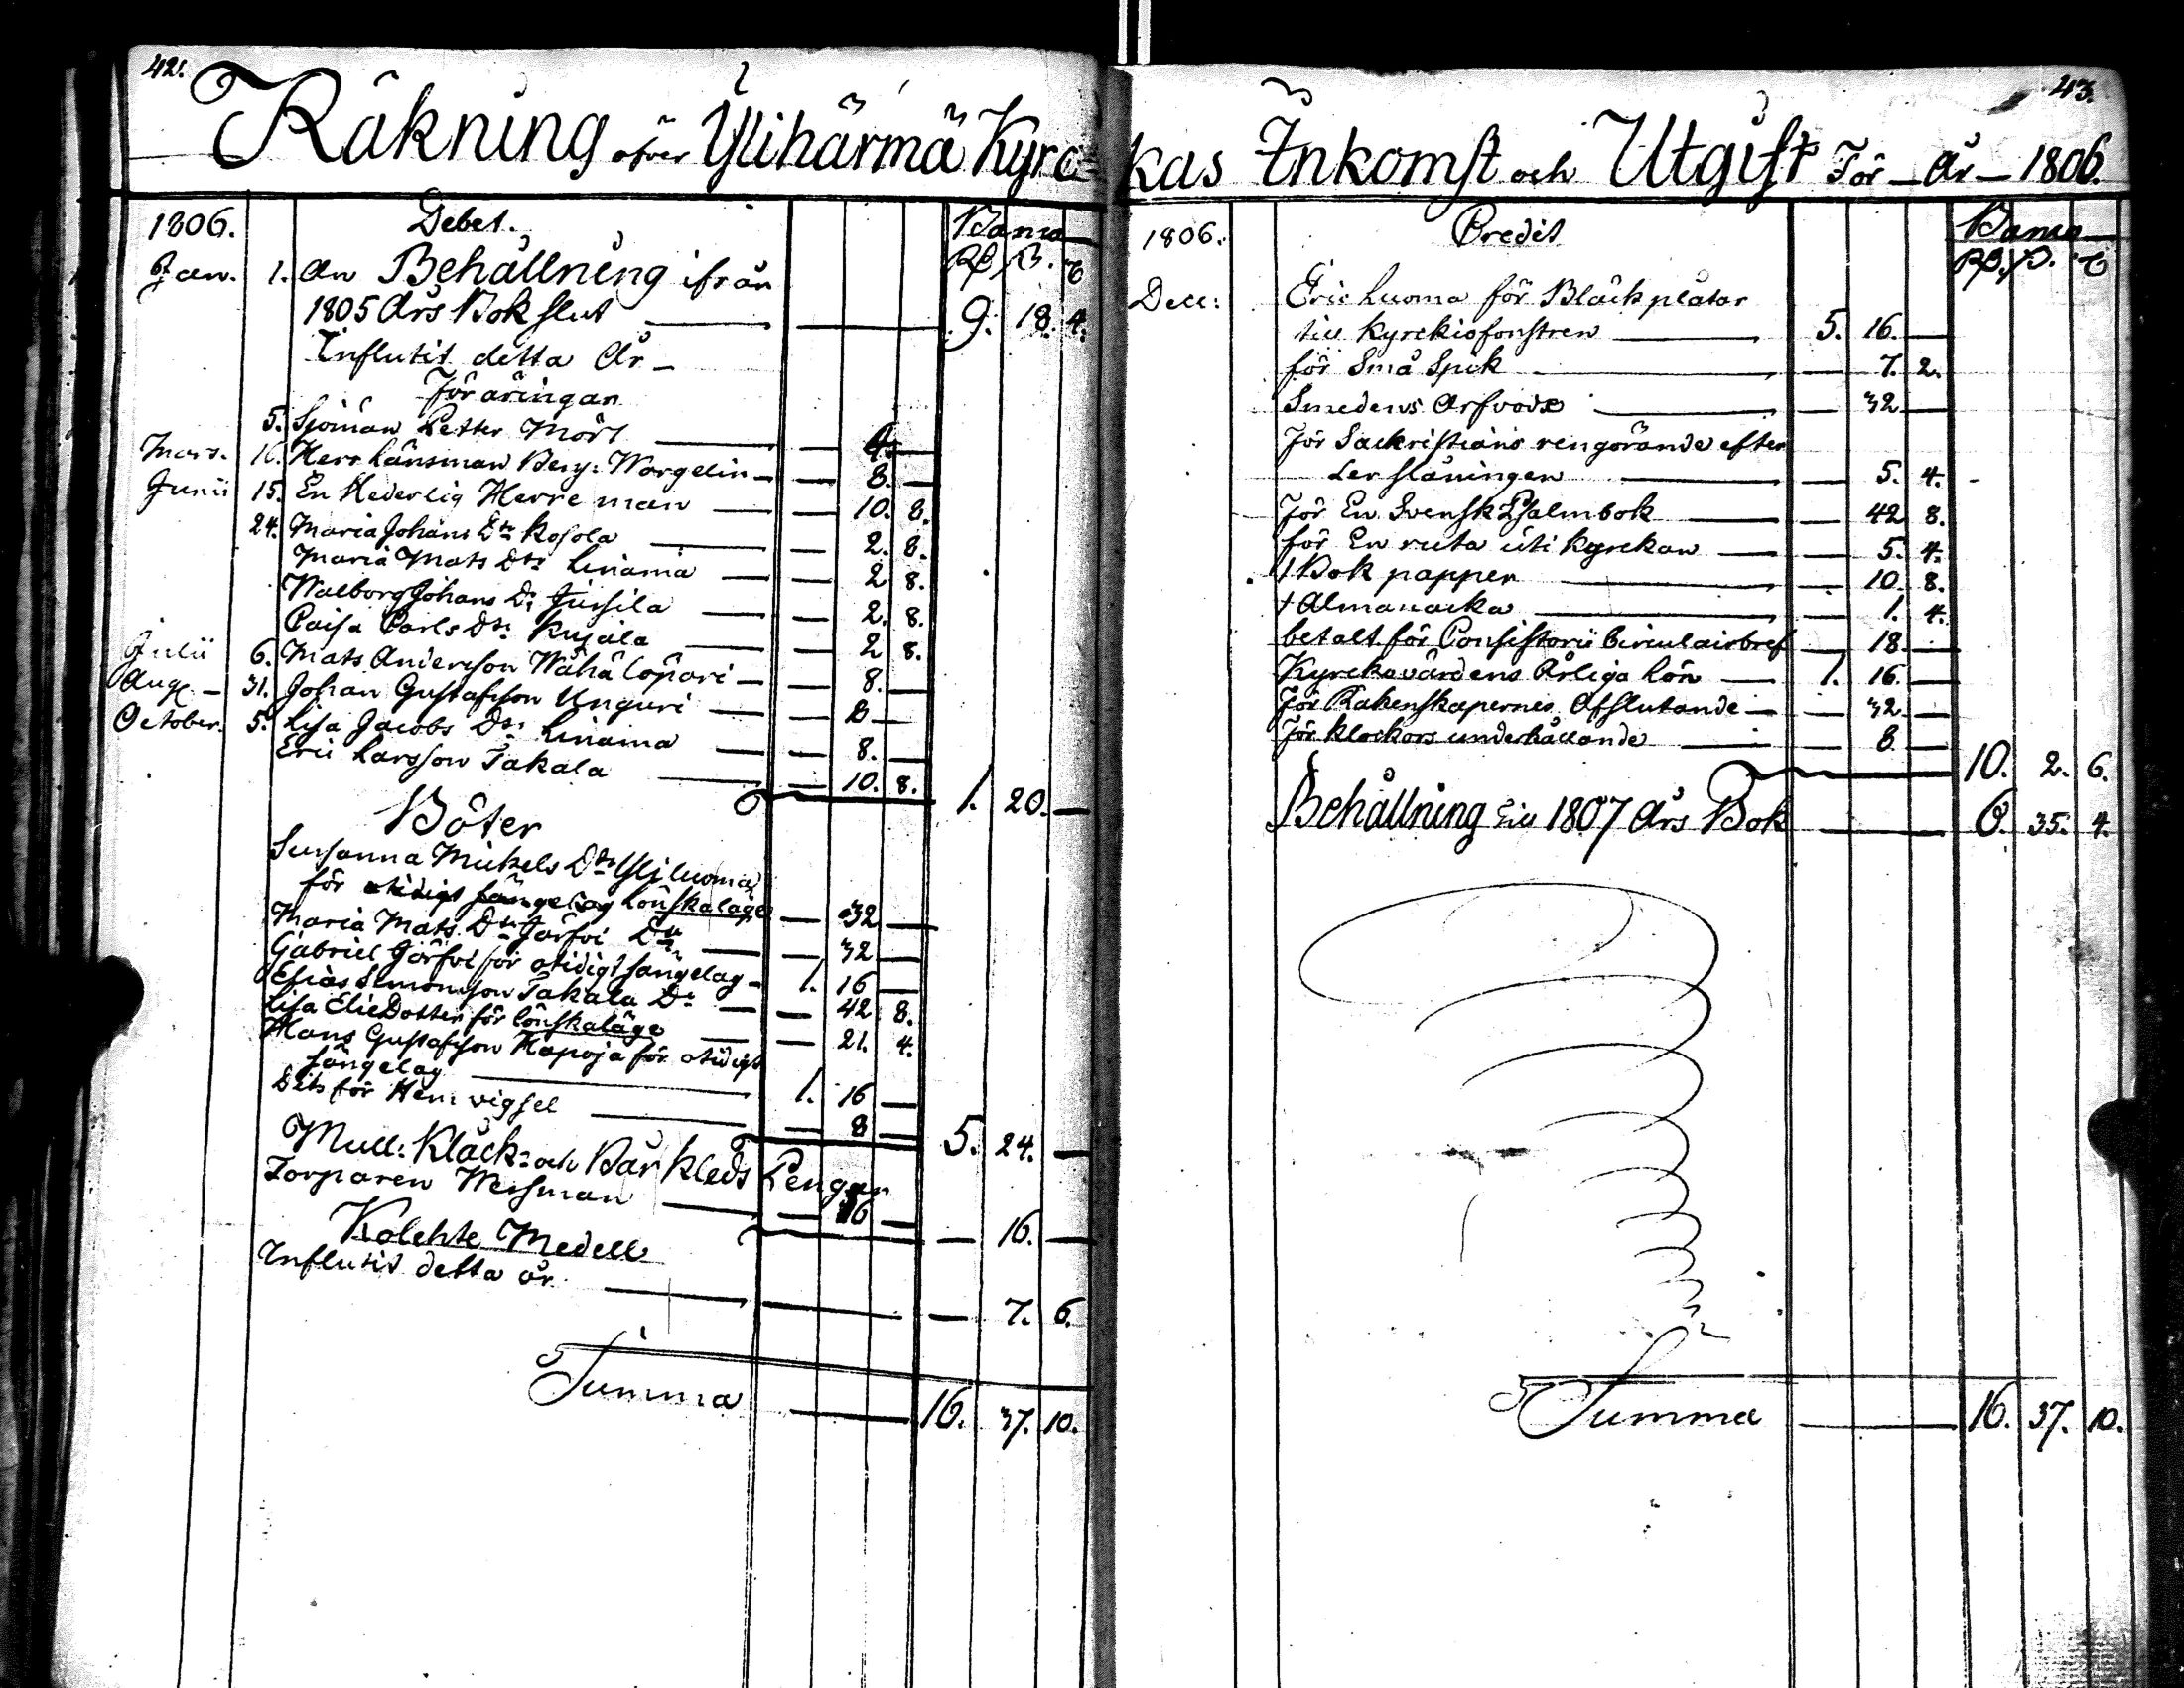 42.
Räkning öfver Ylihärmä Kyrc=
1806. Debet. Banco
Rd. ß. r
Jan. 1. An Behållning ifrån
1805 Års Bok slut — 9. 18. 4.
Influtit detta År —
Föräringar
5. Sjöman Petter Mört — 4. —
Mars. 16. Herr Länsman Benj: Worgelin — 8. —
Junii 15. En Hederlig Herre man — 10. 8.
24. Maria Johans Dr Kosola — 2. 8.
Maria Mats Dtr Linama — 2 8.
Walborg Johans Dr Jussila — 2. 8.
Caisa Carls Dtr Kujala — 2 8.
Julii 6. Mats Andersson Wähälöpari — 8. —
Aug. — 31. Johan Gustafsson Unguri — 8 —
October. 5. Lisa Jacobs Dtr Linama — 8. —
Eric Larsson Takala — 10. 8.
1. 20. —
Böter
Susanna Mickels Dtr Yliluoma
för otidigt sängelag Lönskaläge — 32 —
Maria Mats Dtr Järfvi Do — 32 —
Gabriel Järfvi för otidigt sängelag — 1. 16 —
Elias Simonsson Takala Do — 42 8.
Lisa Elie Dotter för Lönskaläge — 21. 4.
Hans Gustafsson Hapoja för otidigt
sängelag — 1. 16 —
Dito för Hem vigsel — 8 —
5. 24. —
Mull: Klåck= och Bår Kleds Pengar
Torparen Wesman — 16 —
— 16. —
Kolehte Medell
Influtit detta år — 7. 6.
Summa — 16. 37. 10.
43.
kas Inkomst och Utgift För — År — 1806.
1806. Credit Banco
Rd. ß. r
Dec: Eric Luoma för Bläckplåtar
till Kyrckiofönstren — 5. 16. —
för Små Spik — 7. 2.
Smedens Arfvode — 32 —
För Sackristians rengörande efter
Ler slåningen — 5. 4.
För En Svensk Psalmbok — 42 8.
för En ruta uti Kyrckan — 5. 4.
1 Bok papper — 10. 8.
1 Almanacka — 1. 4.
betalt för Consistorii Circulairbref — 18. —
Kyrckovärdens Årliga Lön — 1. 16. —
För Räkenskapernes Afslutande — 32. —
För klockors underhållande — 8 —
10. 2. 6.
Behållning till 1807 Års Bok — 6. 35. 4.
Summa — 16. 37. 10.